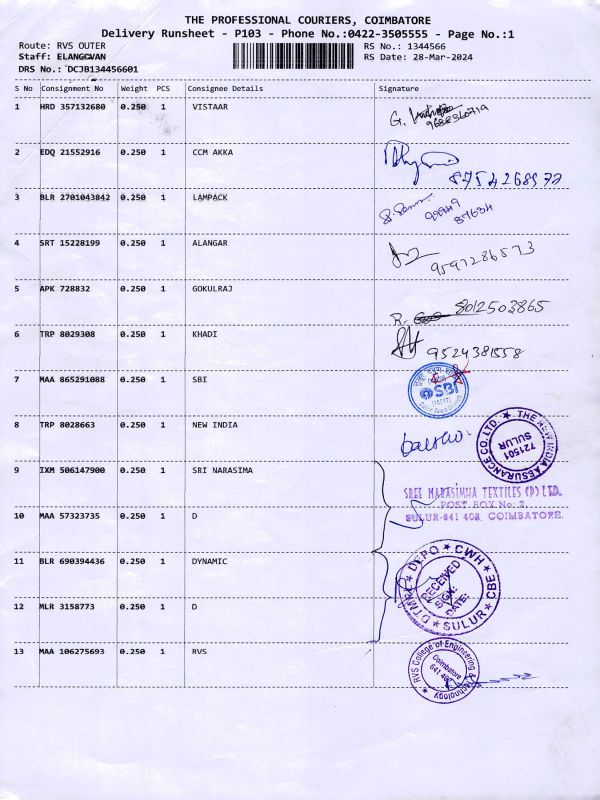 THE PROFESSIONAL COURIERS, COIMBATORE
Delivery Runsheet - P103 - Phone No.:0422-3505555 - Page No.:1
Route: RVS OUTER RS No.: 1344566
Staff: ELANGOVAN RS Date: 28-Mar-2024
DRS No.: DCJB134456601
S No Consignment No Weight PCS Consignee Details Signature
1 HRD 357132680 0.250 1 VISTAAR
G.
2 EDQ 21552916 0.250 1 CCM AKKA
8754268972
3 BLR 2701043842 0.250 1 LAMPACK
4 SRT 15228199 0.250 1 ALANGAR
9597286573
5 APK 728832 0.250 1 GOKULRAJ
R. 8012503865
6 TRP 8029308 0.250 1 KHADI
9524381558
7 MAA 865291088 0.250 1 SBI
SBI
8 TRP 8028663 0.250 1 NEW INDIA
THE NEW INDIA ASSURANCE CO. LTD.
721501
SULUR
9 IXM 506147900 0.250 1 SRI NARASIMA
SREE NARASIMHA TEXTILES (P) LTD.
POST BOX No: 2,
SULUR-641 402, COIMBATORE.
10 MAA 57323735 0.250 1 D
11 BLR 690394436 0.250 1 DYNAMIC
DEPO ★ CWH ★ CBE
RECEIVED
SIGN:
DATE:
★ SULUR ★
12 MLR 3158773 0.250 1 D
13 MAA 106275693 0.250 1 RVS
RVS College of Engineering & Technology
Coimbatore